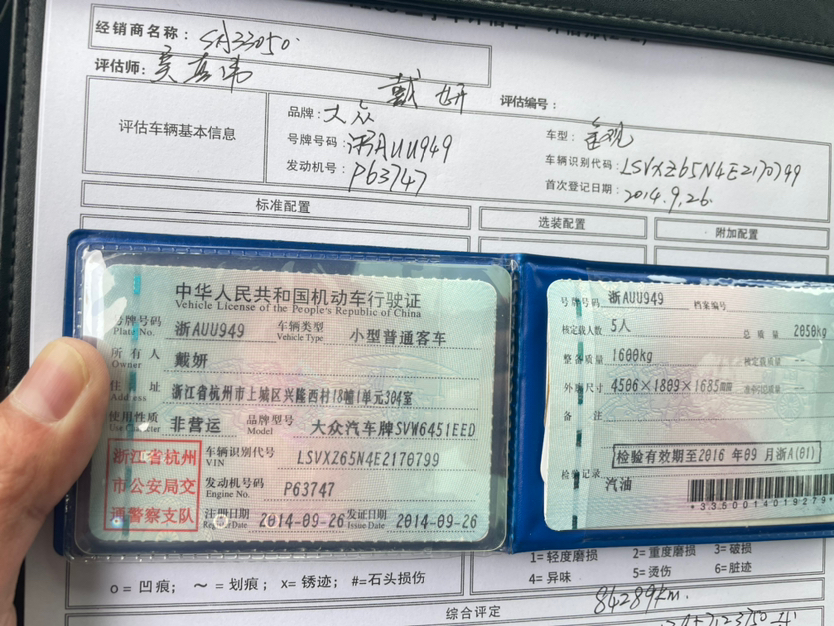 经销商名称: SA33050.
评估师:
戴妍 评估编号:
评估车辆基本信息
品牌: 大众 车型:
号牌号码: 浙AUU949 车辆识别代码: LSVXZ65N4E2170799
发动机号: P63747 首次登记日期: 2014.9.26.
标准配置 选装配置 附加配置
中华人民共和国机动车行驶证
Vehicle License of the People's Republic of China
号牌号码 浙AUU949 车辆类型 小型普通客车
Plate No. Vehicle Type
所有人 戴妍
Owner
住址 浙江省杭州市上城区兴隆西村18幢1单元304室
Address
使用性质 非营运 品牌型号 大众汽车牌SVW6451EED
Use Character Model
浙江省杭州
市公安局交
通警察支队
车辆识别代号 LSVXZ65N4E2170799
VIN
发动机号码 P63747
Engine No.
注册日期 2014-09-26 发证日期 2014-09-26
Register Date Issue Date
号牌号码 浙AUU949 档案编号
核定载人数 5人 总质量 2050kg
整备质量 1600kg 核定载质量 --
外廓尺寸 4506×1809×1685mm 准牵引总质量 --
备注
检验有效期至2016年09月浙A(01)
检验记录
汽油
o=凹痕; ～=划痕; x=锈迹; #=石头损伤
1=轻度磨损 2=重度磨损 3=破损
4=异味 5=烫伤 6=脏迹
综合评定
84289km.